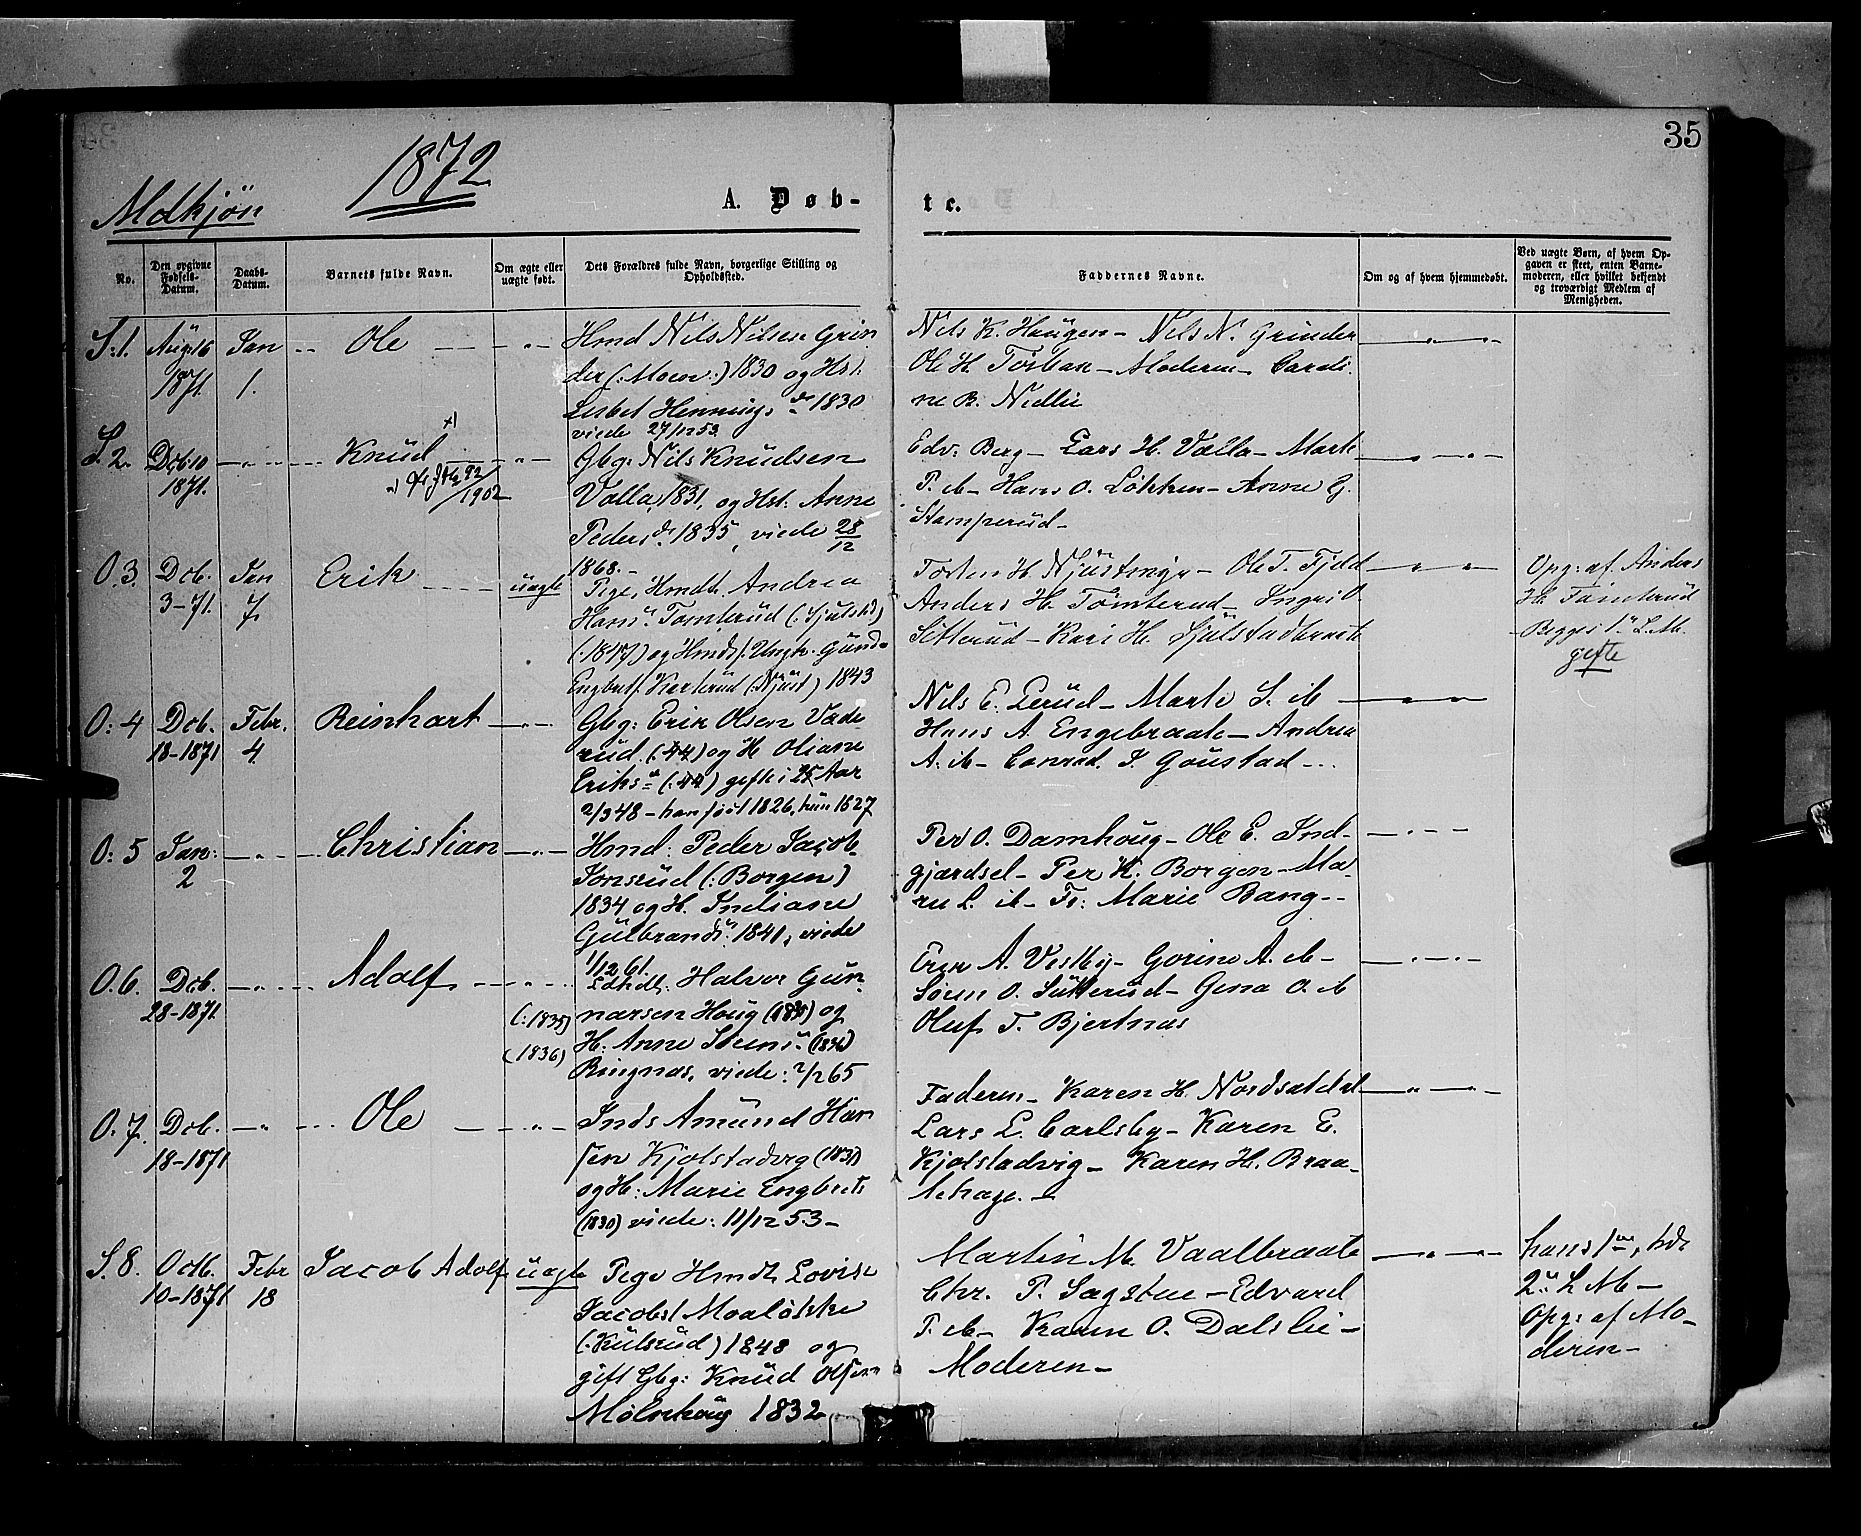 35
1872
Mdkjön
A. Døb-
te.
No.
Den opgivne
Fødsels-
Datum.
Daabs-
Datum.
Barnets fulde Navn.
Om ægte eller
uægte født.
Dets Forældres fulde Navn, borgerlige Stilling og
Opholdssted.
Faddernes Navne.
Om og af hvem hjemmedøbt.
Ved uægte Børn, af hvem Op-
gaven er skeet, enten Barne-
moderen, eller hvilket bekjendt
og troværdigt Medlem af
Menigheden.
S. 1. Aug. 16 Jan Ole
1871. 1.
Hmd Nils Nilsen Grin
der (: Moen :) 1830 og Hst.
Lisbet Hennings d. 1830
viede 27/12 53.
Nils K. Haugen - Nels N. Grinder
Ole H. - Moderen - Caroli-
ne B.
S. 2. Dcb. 10 Knud
1871.
/1902
Gbg: Nils Knudsen
Valla, 1831, og Hst: Anne
Peders d. 1835, viede 28/12
1868. -
Edv: Berg - Lars H. Valla - Marte
P. ib - Hans O. Løkken - Anne G.
Stamperud -
O. 3. Dcb. Jan Erik uægte
3-71. 7.
Pige, Hmdt. Andrea
Hans d. Tømterud
(: 1847) og Hmds f. Ungk. Gund.
Engbretf. Karterud (: Njust) 1843
Ole T. Fjeld
Anders H. Tømterud - Ingri O.
Sætterud - Kari H. Sjulstadbraate
Opg: af Anders
H. Tömterud
Begges 1. L.M.
gifte
O: 4 Dcb. Febr. Reinhart
18-1871 4.
Gbg: Erik Olsen Vade
rud. (: 44) og H. Oliane
Eriks d. (: 44) gifte i 25 Aar
2/3 48 - han født 1826, hun 1827
Nils E. Lerud - Marte S. ib -
Hans A. Engebraate - Andrea
A. ib - Conrad. J. Goustad -
O: 5 Jan: Christian
2
Hmd: Peder Jacob.
Jonsrud (: Borgen)
1834 og H. Indiane
Gulbrands d. 1841, viede
1/12 61.
Per O. Damhoug - Ole E. Ind-
gjærdsel - Per K. Borgen - Ma-
ru L. ib - Fr: Marie Bang -
O. 6. Dcb. Adolf
28-1871
(: 1835)
(1836)
Halvor Gun-
narsen Houg og
H: Anne
Ringnas, viede: 2/2 65
Erik A. Vestby - Gorine A. ib -
Søren O. Sætterud - Gina O. ib
Oluf T. Bjertnas
O. 7. Dcb. Ole
18-1871
Inds Amund Han
sen Kjolstadvig
og H: Marie Engbrets
(1830) viede: 11/12 53 -
Faderen - Karen H. Nordsætdal
Lars L. Carlsby - Karen E.
Kjolstadvig - Karen H. Braa-
tehage. -
S. 8. Octb. Febr Jacob Adolf uægte
10-1871 18
Pige Hmdt. Lovise
Jacobsd Moaløkke
(: Kulsrud) 1848 og
gift Gbg: Knud Olsen
Mølnehoug 1832
Martin M. Vaalbraate
Chr. P. Sagstue - Edvard
P. ib - Karen O. Dalslie -
Moderen -
hans 1ste, hds
2. L M -
Opg: af Mo-
deren -